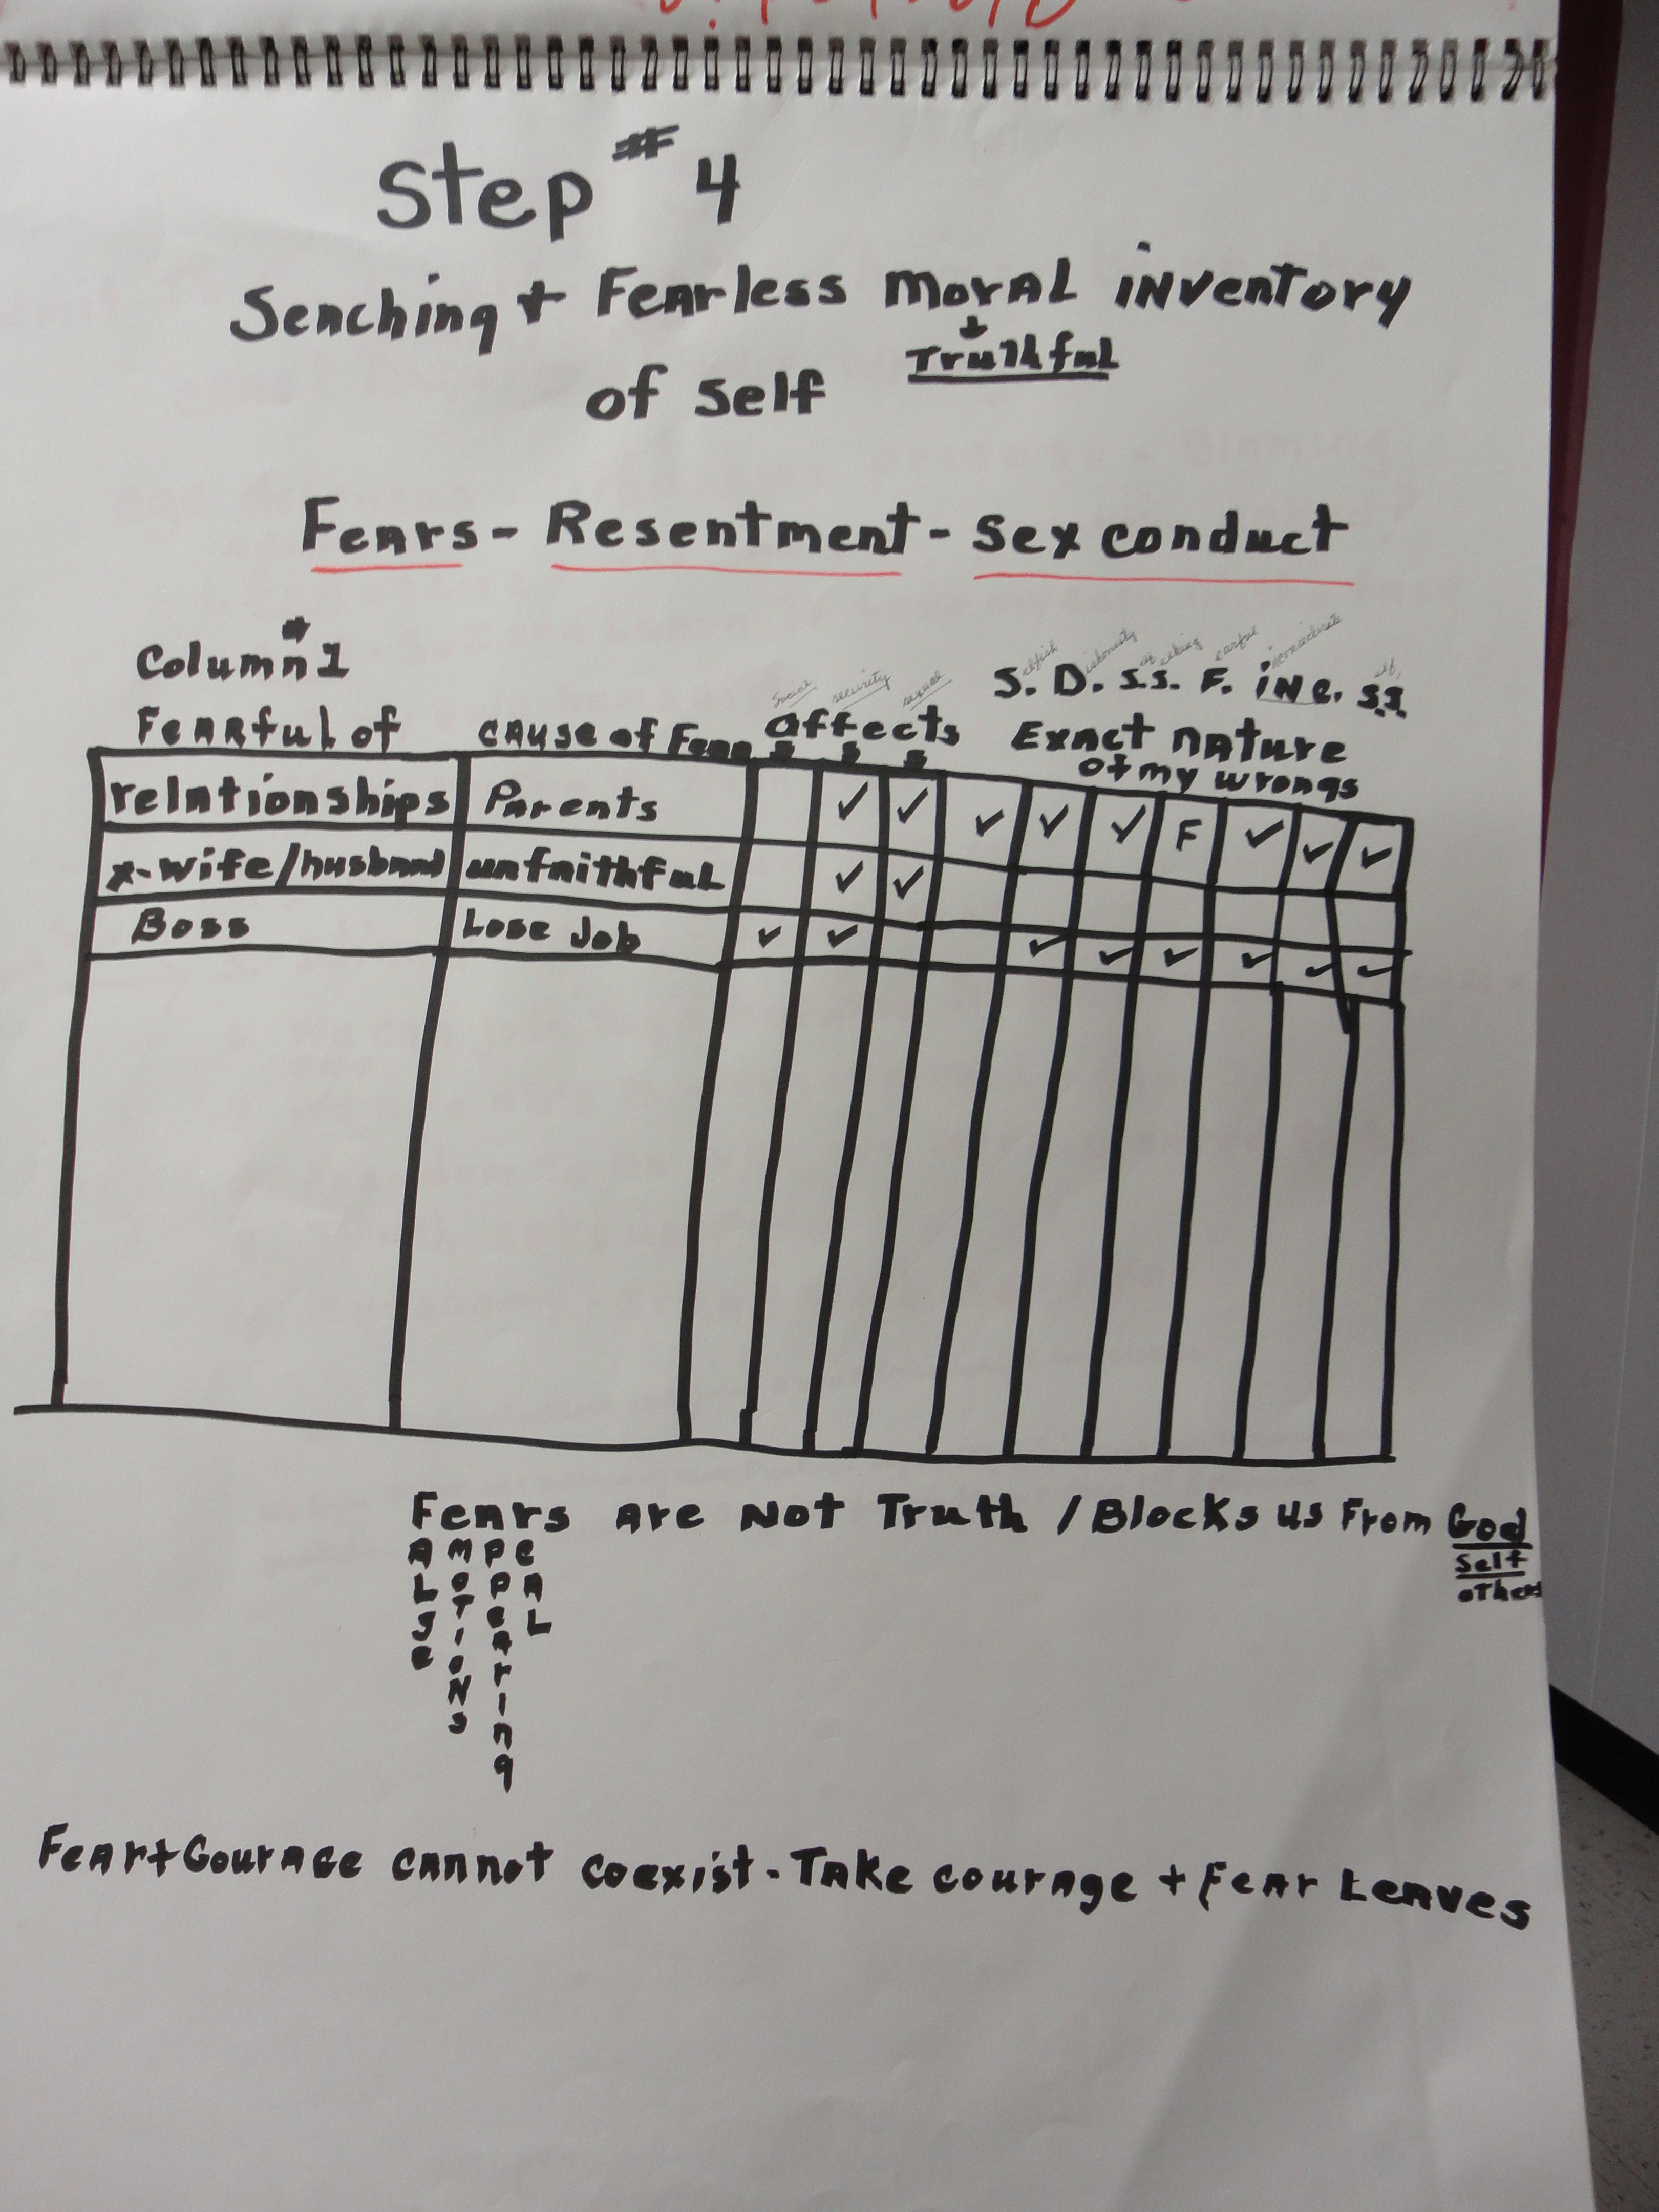 Step # 4
Senching + Fearless moral inventory
+ Truthful
of self
Fears - Resentment - Sex conduct
Column # 1
selfish Dishonesty seeking Fearful inconsiderate
S. D. S.S. F. inc. S.S.
social security sexual
Fearful of cause of Fear affects Exact nature
s s s of my wrongs
relationships Parents ✓ ✓ ✓ ✓ ✓ F ✓ ✓ ✓
x-wife/husband unfaithful ✓ ✓
Boss Lose Job ✓ ✓ ✓ ✓ ✓ ✓ ✓ ✓
Fears Are Not Truth / Blocks us From God
Self
others
False
emotions
Appearing
real
Fear + Courage cannot coexist - Take courage + fear Leaves